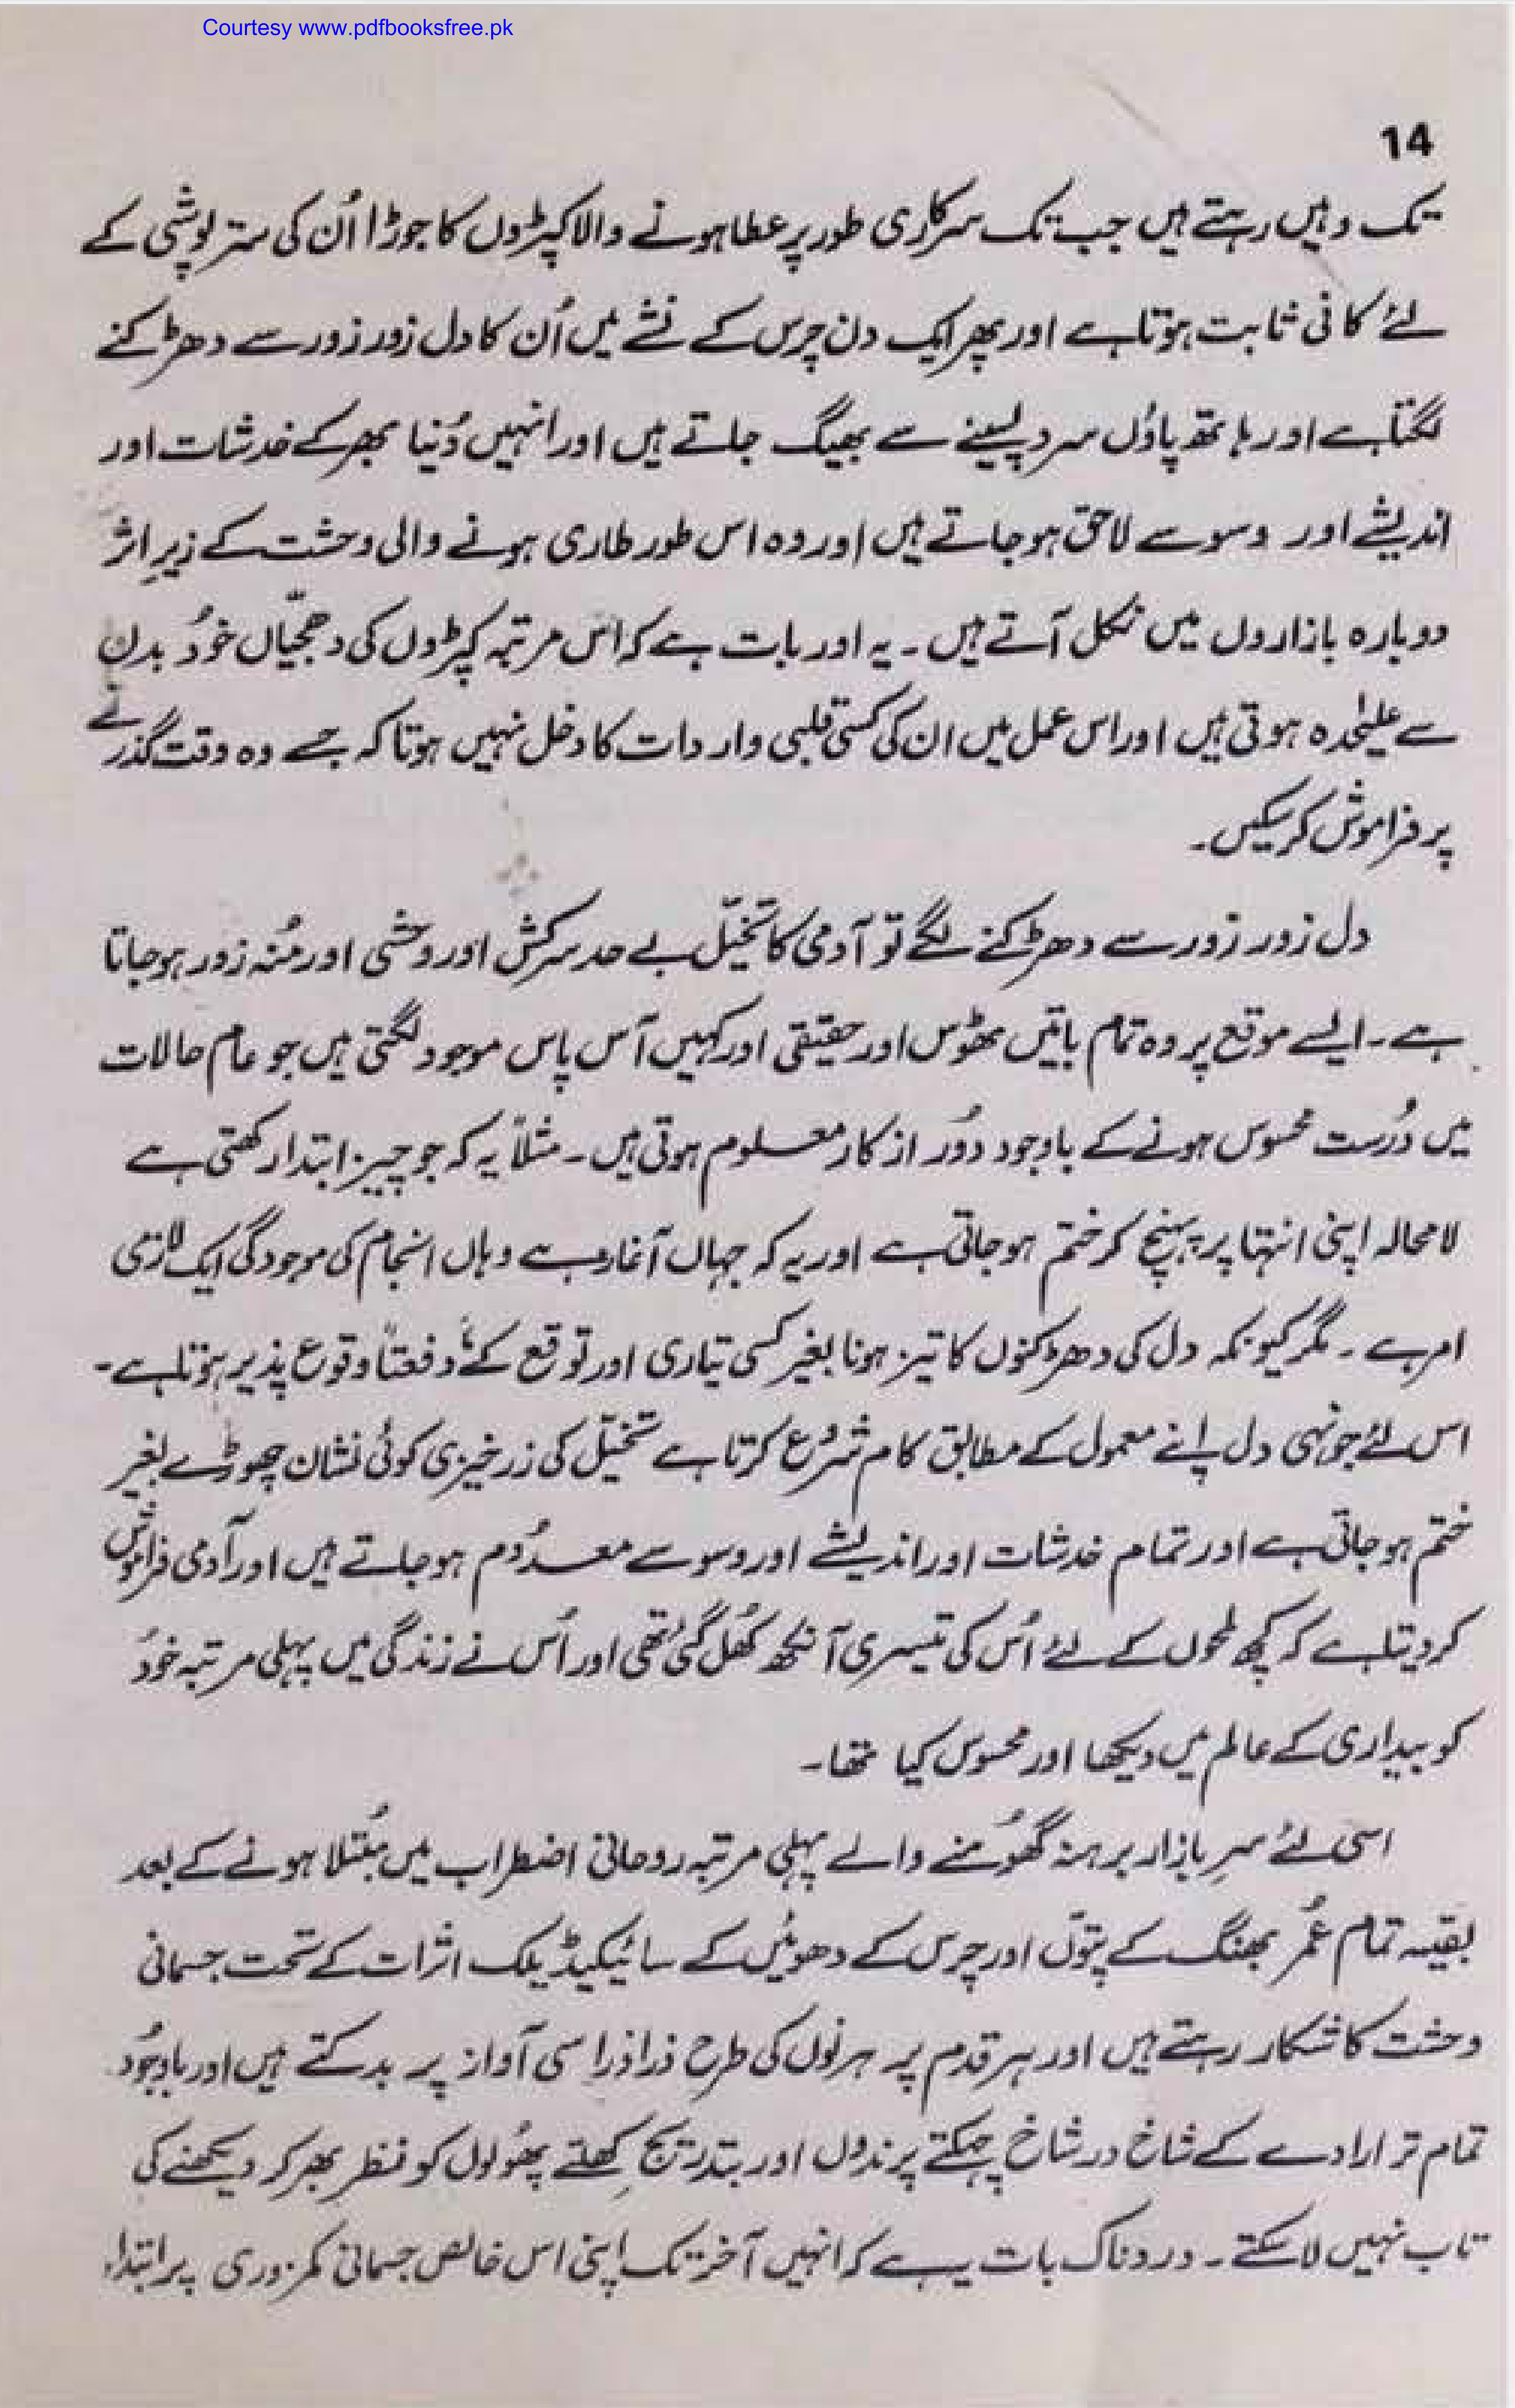 Courtesy www.pdfbooksfree.pk
14
تک وہیں رہتے ہیں جب تک سرکاری طور پر عطا ہونے والا کپڑوں کا جوڑا اُن کی ستر پوشی کے
لئے کافی ثابت ہوتا ہے اور پھر ایک دن چرس کے نشے میں اُن کا دل زور زور سے دھڑکنے
لگتا ہے اور ہاتھ پاؤں سرد پسینے سے بھیگ جاتے ہیں اور انہیں دُنیا بھر کے خدشات اور
اندیشے اور وسوسے لاحق ہو جاتے ہیں اور وہ اس طور طاری ہونے والی وحشت کے زیرِ اثر
دوبارہ بازاروں میں نکل آتے ہیں ۔ یہ اور بات ہے کہ اس مرتبہ کپڑوں کی دھجیّاں خودُ بدن
سے علیٰحدہ ہوتی ہیں اور اس عمل میں ان کی کسی قلبی واردات کا دخل نہیں ہوتا کہ جسے وہ وقت گذرنے
پر فراموش کر سکیں ۔
دل زور زور سے دھڑکنے لگے تو آدمی کا تخیّل بے حد سرکش اور وحشی اور مُنہ زور ہو جاتا
ہے ۔ ایسے موقع پر وہ تمام باتیں ٹھوس اور حقیقی اور کہیں آس پاس موجود لگتی ہیں جو عام حالات
میں دُرست محسوس ہونے کے باوجود دُور از کار معلوم ہوتی ہیں ۔ مثلاً یہ کہ جو چیز ابتدا رکھتی ہے
لا محالہ اپنی انتہا پر پہنچ کر ختم ہو جاتی ہے اور یہ کہ جہاں آغاز ہے وہاں انجام کی موجودگی ایک لازمی
امر ہے ۔ مگر کیونکہ دل کی دھڑکنوں کا تیز ہونا بغیر کسی تیاری اور توقع کے، دفعتاً وقوع پذیر ہوتا ہے ۔
اس لئے جونہی دل اپنے معمول کے مطابق کام شروع کرتا ہے تخیّل کی زرخیزی کوئی نشان چھوڑے بغیر
ختم ہو جاتی ہے اور تمام خدشات اور اندیشے اور وسوسے معدُوم ہو جاتے ہیں اور آدمی فراموش
کر دیتا ہے کہ کچھ لمحوں کے لئے اُس کی تیسری آنکھ کُھل گئی تھی اور اُس نے زندگی میں پہلی مرتبہ خودُ
کو بیداری کے عالم میں دیکھا اور محسوس کیا تھا ۔
اسی لئے سرِ بازار برہنہ گھُومنے والے پہلی مرتبہ روحانی اضطراب میں مُبتلا ہونے کے بعد
بقیہ تمام عُمر بھنگ کے پتوّں اور چرس کے دھوئیں کے سائیکیڈیلک اثرات کے تحت جسمانی
وحشت کا شکار رہتے ہیں اور ہر قدم پر ہرنوں کی طرح ذرا ذرا سی آواز پر بدکتے ہیں اور باوجُود
تمام تر ارادے کے شاخ در شاخ چہکتے پرندوں اور بتدریج کِھلتے پھُولوں کو نظر بھر کر دیکھنے کی
تاب نہیں لا سکتے ۔ دردناک بات یہ ہے کہ انہیں آخر تک اپنی اس خالص جسمانی کمزوری پر ابتداء